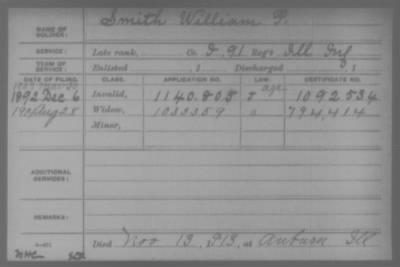 NAME OF SOLDIER: Smith William P.
SERVICE: Late rank, Co. D, 91 Reg't Ill Inf
TERM OF SERVICE: Enlisted , 1 Discharged , 1
DATE OF FILING. CLASS. APPLICATION NO. LAW. CERTIFICATE NO.
age
1892 Dec 6 Invalid, 1140.805 1092534
Aug 28 Widow, 1033359 794,414
Minor,
ADDITIONAL SERVICES:
REMARKS:
Died Nov 13, 1913, at Auburn Ill